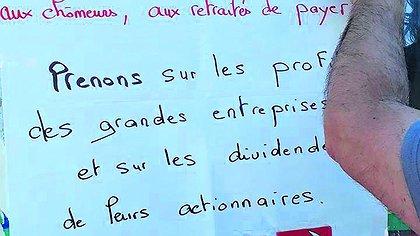 aux chômeurs, aux retraités de payer
Prenons sur les prof
des grandes entreprises
et sur les dividende
de leurs actionnaires.